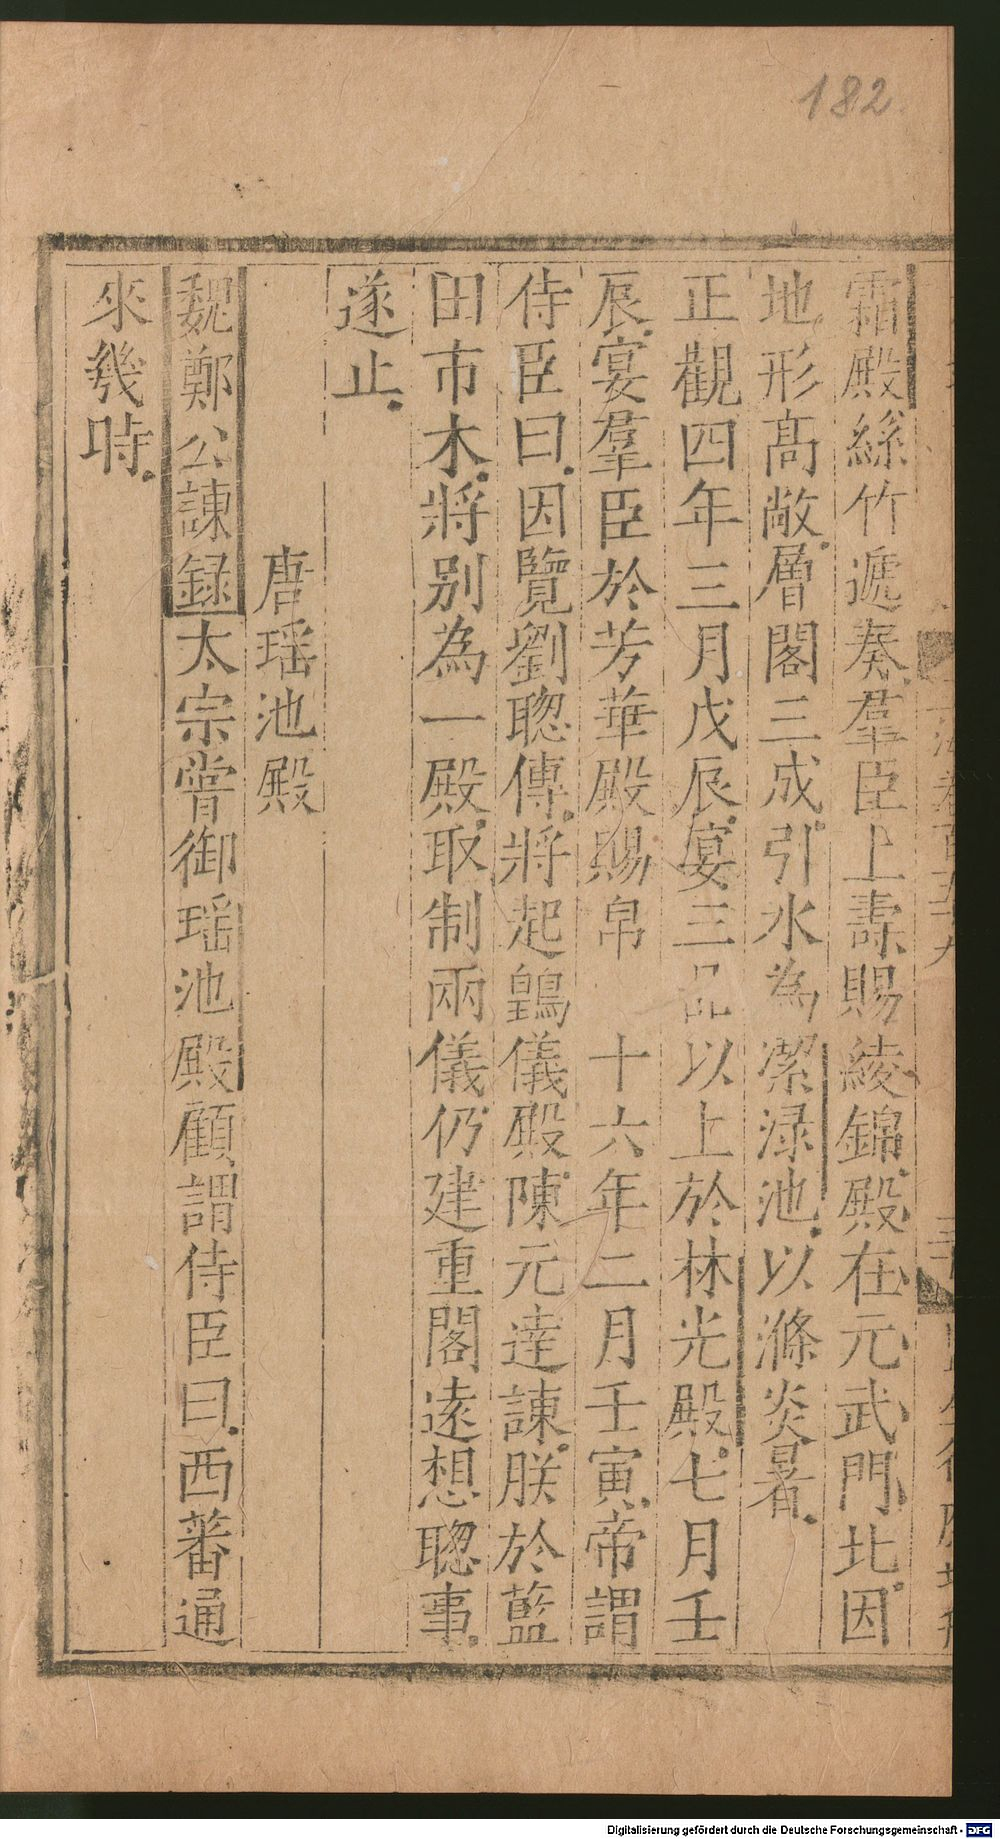 182.
霜殿絲竹遞奏羣臣上壽賜綾錦殿在元武門北因
地形髙敞層閣三成引水為潔渌池以滌炎暑
正觀四年三月戊辰宴三品以上於林光殿七月壬
辰宴羣臣於芳華殿賜帛　十六年二月壬寅帝謂
侍臣曰因覽劉聦傳將起䳨儀殿陳元達諫朕於藍
田市木將别為一殿取制兩儀仍建重閣逺想聦事
遂止
唐瑶池殿
魏鄭公諫録太宗甞御瑶池殿顧謂侍臣曰西蕃通
來幾時
Digitalisierung gefördert durch die Deutsche Forschungsgemeinschaft - DFG